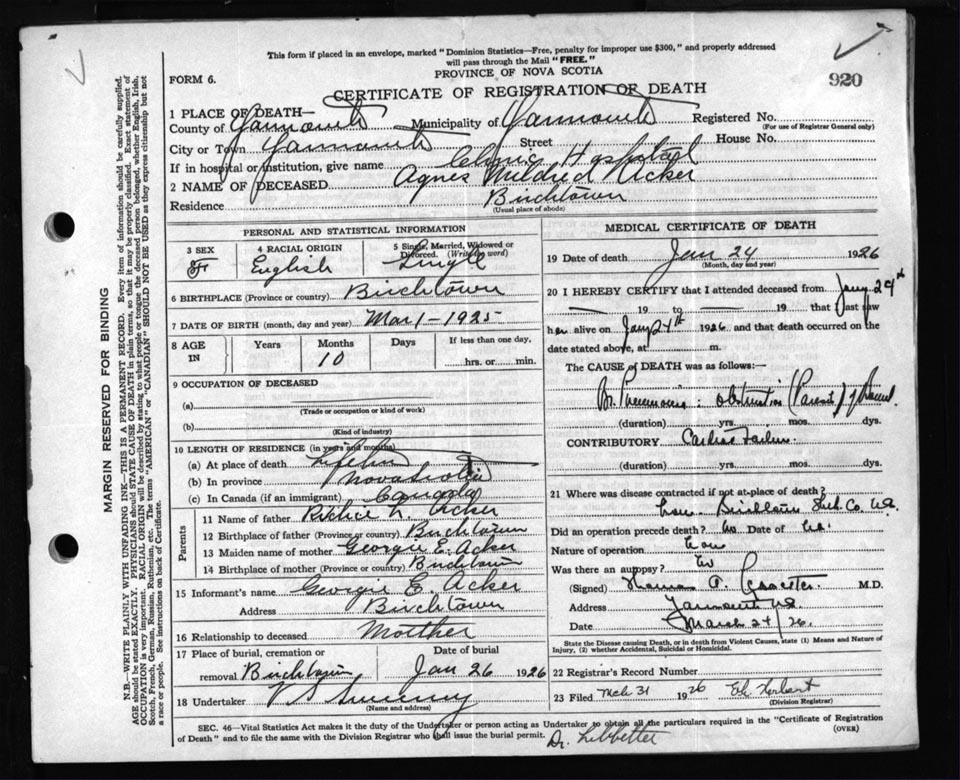 This form if placed in an envelope, marked "Dominion Statistics—Free, penalty for improper use $300," and properly addressed
will pass through the Mail "FREE."
920
FORM 6.
PROVINCE OF NOVA SCOTIA
CERTIFICATE OF REGISTRATION OF DEATH
1 PLACE OF DEATH—
County of Yarmouth Municipality of Yarmouth Registered No.
(For use of Registrar General only)
City or Town Yarmouth Street House No.
If in hospital or institution, give name Clinic Hospital
2 NAME OF DECEASED Agnes Mildred Acker
Residence Birchtown
(Usual place of abode)
PERSONAL AND STATISTICAL INFORMATION
3 SEX 4 RACIAL ORIGIN 5 Single, Married, Widowed or
Divorced. (Write the word)
F English Single
6 BIRTHPLACE (Province or country) Birchtown
7 DATE OF BIRTH (month, day and year) Mar 1 - 1925
8 AGE IN Years Months Days If less than one day,
10 hrs. or min.
9 OCCUPATION OF DECEASED
(a)
(Trade or occupation or kind of work)
(b)
(Kind of industry)
10 LENGTH OF RESIDENCE (in years and months)
(a) At place of death
(b) In province Nova Scotia
(c) In Canada (if an immigrant) Canada
Parents
11 Name of father Acker
12 Birthplace of father (Province or country) Birchtown
13 Maiden name of mother Georgie E. Acker
14 Birthplace of mother (Province or country) Birchtown
15 Informant's name Georgie E. Acker
Address Birchtown
16 Relationship to deceased Mother
17 Place of burial, cremation or Date of burial
removal Birchtown Jan 26 1926
18 Undertaker V S Sweeny
(Name and address)
MEDICAL CERTIFICATE OF DEATH
19 Date of death Jan 24 1926
(Month, day and year)
20 I HEREBY CERTIFY that I attended deceased from Jany 24th
19 to 19 that I last saw
her alive on Jany 24th 1926 and that death occurred on the
date stated above, at m.
The CAUSE OF DEATH was as follows:—
Br. Pneumonia: obstruction of Bowel
(duration) yrs. mos. dys.
CONTRIBUTORY Cardiac Failure
(duration) yrs. mos. dys.
21 Where was disease contracted if not at place of death?
Birchtown Shel. Co. N.S.
Did an operation precede death? No Date of
Nature of operation
Was there an autopsy? No
(Signed) M.D.
Address Yarmouth N.S.
Date March 24/26.
State the Disease causing Death, or in death from Violent Causes, state (1) Means and Nature of
Injury, (2) whether Accidental, Suicidal or Homicidal.
22 Registrar's Record Number
23 Filed Mch 31 1926
(Division Registrar)
SEC. 46—Vital Statistics Act makes it the duty of the Undertaker or person acting as Undertaker to obtain all the particulars required in the "Certificate of Registration
of Death" and to file the same with the Division Registrar who shall issue the burial permit.
(OVER)
Dr. Lebbetter
MARGIN RESERVED FOR BINDING
N.B.—WRITE PLAINLY WITH UNFADING INK—THIS IS A PERMANENT RECORD. Every item of information should be carefully supplied.
AGE should be stated EXACTLY. PHYSICIANS should STATE CAUSE OF DEATH in plain terms, so that it may be properly classified. Exact statement of
OCCUPATION is very important. RACIAL ORIGIN will be described by stating to what people or tongue the deceased person belonged, whether English, Irish,
Scotch, French, German, Russian, Ruthenian, etc. The terms "AMERICAN" or "CANADIAN" SHOULD NOT BE USED as they express citizenship but not
a race or people. See instructions on back of Certificate.